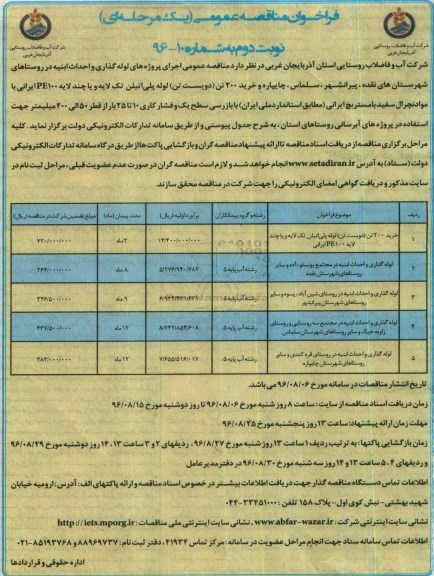 فراخوان مناقصه عمومی (یک مرحله ای)
نوبت دوم به شماره ۱۰-۹۶
شرکت آب و فاضلاب روستایی آذربایجان غربی
شرکت آب و فاضلاب روستایی آذربایجان غربی
شرکت آب و فاضلاب روستایی استان آذربایجان غربی در نظر دارد مناقصه عمومی اجرای پروژه های لوله گذاری و احداث ابنیه در روستاهای
شهرستان های نقده، پیرانشهر، سلماس، چایپاره و خرید ۲۰۰ تن (دویست تن) لوله پلی اتیلن تک لایه و یا چند لایه PE۱۰۰ ایرانی با
مواد نچرال سفید با مستربچ ایرانی (مطابق استاندارد ملی ایران) با بازرسی سطح یک و فشار کاری ۱۰ تا ۲۵ بار از قطر ۵۰ الی ۴۰۰ میلیمتر جهت
استفاده در پروژه های آبرسانی روستاهای استان، به شرح جدول پیوستی و از طریق سامانه تدارکات الکترونیکی دولت برگزار نماید. کلیه
مراحل برگزاری مناقصه از دریافت اسناد مناقصه تا ارائه پیشنهاد مناقصه گران و بازگشایی پاکت ها از طریق درگاه سامانه تدارکات الکترونیکی
دولت (ستاد) به آدرس www.setadiran.ir انجام خواهد شد و لازم است مناقصه گران در صورت عدم عضویت قبلی، مراحل ثبت نام در
سایت مذکور و دریافت گواهی امضای الکترونیکی را جهت شرکت در مناقصه محقق سازند.
ردیف موضوع فراخوان رشته و گروه پیمانکاران برآورد اولیه (ریال) مدت پیمان (ماه) مبلغ تضمین شرکت در مناقصه (ریال)
۱ خرید ۲۰۰ تن (دویست تن) لوله پلی اتیلن تک لایه و یا چند لایه PE۱۰۰ ایرانی ۱۴/۴۰۰/۰۰۰/۰۰۰ ۳ ماه ۷۲۰/۰۰۰/۰۰۰
۲ لوله گذاری و احداث ابنیه در مجتمع یونسلو، آده و سایر روستاهای شهرستان نقده رشته آب پایه ۵ ۵/۲۷۶/۹۴۰/۷۸۲ ۸ ماه ۲۶۴/۰۰۰/۰۰۰
۳ لوله گذاری و احداث ابنیه در روستای شین آباد، پسوه و سایر روستاهای شهرستان پیرانشهر رشته آب پایه ۵ ۹ ماه ۳۴۶/۵۰۰/۰۰۰
۴ لوله گذاری و احداث ابنیه در مجتمع سه روستایی و روستای زاویه جیک و سایر روستاهای شهرستان سلماس رشته آب پایه ۵ ۱۲ ماه ۴۳۷/۵۰۰/۰۰۰
۵ لوله گذاری و احداث ابنیه در روستای قره کندی و سایر روستاهای شهرستان چایپاره رشته آب پایه ۵ ۷/۶۵۵/۵۱۶/۰۱۷ ۱۲ ماه ۳۸۳/۰۰۰/۰۰۰
تاریخ انتشار مناقصات در سامانه مورخ ۹۶/۰۸/۰۶ می باشد.
زمان دریافت اسناد مناقصه از سایت: ساعت ۸ روز شنبه مورخ ۹۶/۰۸/۰۶ تا روز دوشنبه مورخ ۹۶/۰۸/۱۵
مهلت زمان ارائه پیشنهاد: ساعت ۱۳ روز پنجشنبه مورخ ۹۶/۰۸/۲۵
زمان بازگشایی پاکتها: به ترتیب ردیف ۱ ساعت ۱۳ روز شنبه مورخ ۹۶/۸/۲۷، ردیفهای ۲ و ۳ ساعت ۱۳، ۱۴ روز دوشنبه مورخ ۹۶/۰۸/۲۹
و ردیفهای ۴، ۵ ساعت ۱۳ و ۱۴ روز سه شنبه مورخ ۹۶/۰۸/۳۰ در دفتر مدیرعامل
اطلاعات تماس دستگاه مناقصه گذار جهت دریافت اطلاعات بیشتر در خصوص اسناد مناقصه و ارائه پاکتهای الف: آدرس: ارومیه خیابان
شهید بهشتی- نبش کوی اول- پلاک ۱۵۸ تلفن: ۳۳۴۵۱۰۰۰-۰۴۴
نشانی سایت اینترنتی شرکت: www.abfar-wazar.ir، نشانی سایت اینترنتی ملی مناقصات: http://iets.mporg.ir
اطلاعات تماس سامانه ستاد جهت انجام مراحل عضویت در سامانه: مرکز تماس ۴۱۹۳۴، دفتر ثبت نام: ۸۸۹۶۹۷۳۷ و ۸۵۱۹۳۷۶۸-۰۲۱
اداره حقوقی و قراردادها